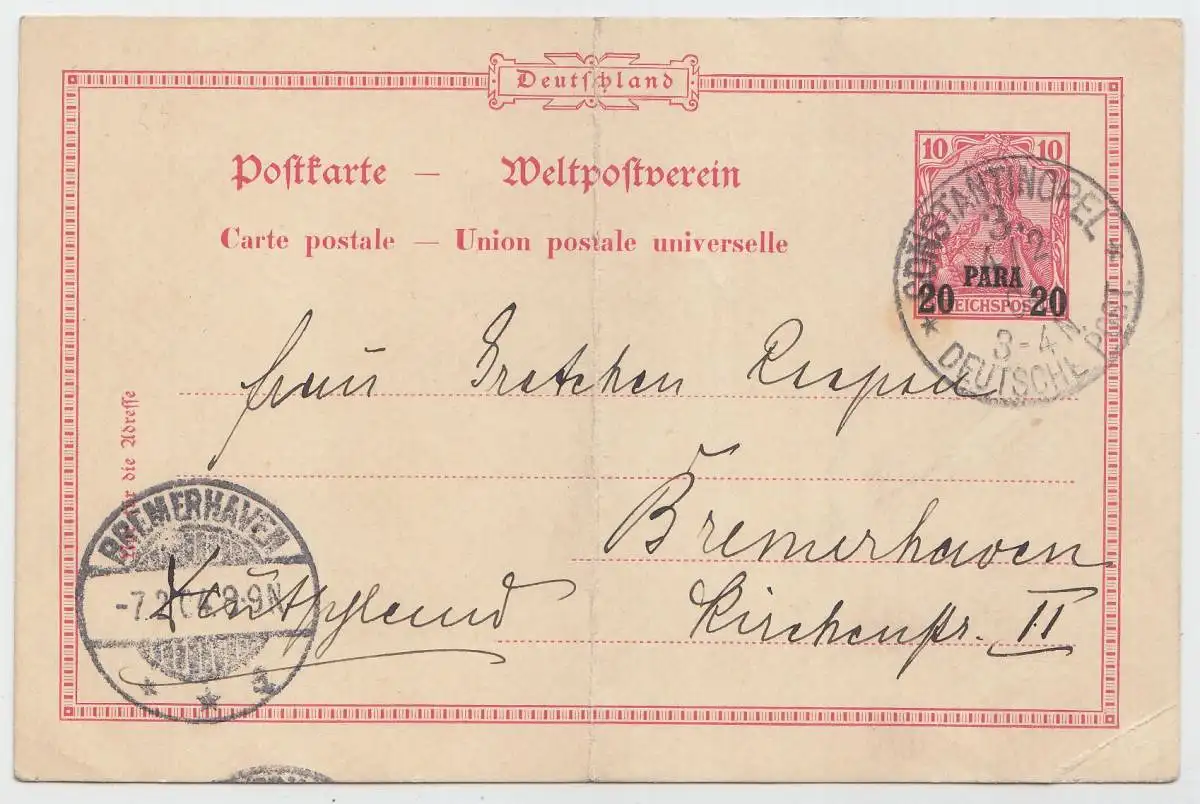 Deutschland
Postkarte — Weltpostverein
Carte postale — Union postale universelle
10 10
PARA
20 20
REICHSPOST
CONSTANTINOPEL
3·2
3-4 N.
* DEUTSCHE POST. *
Frau Gretchen
Bremerhaven
Kirchenstr. II
Deutschland
die Adresse
BREMERHAVEN
-7.2. 8-9N
* * a